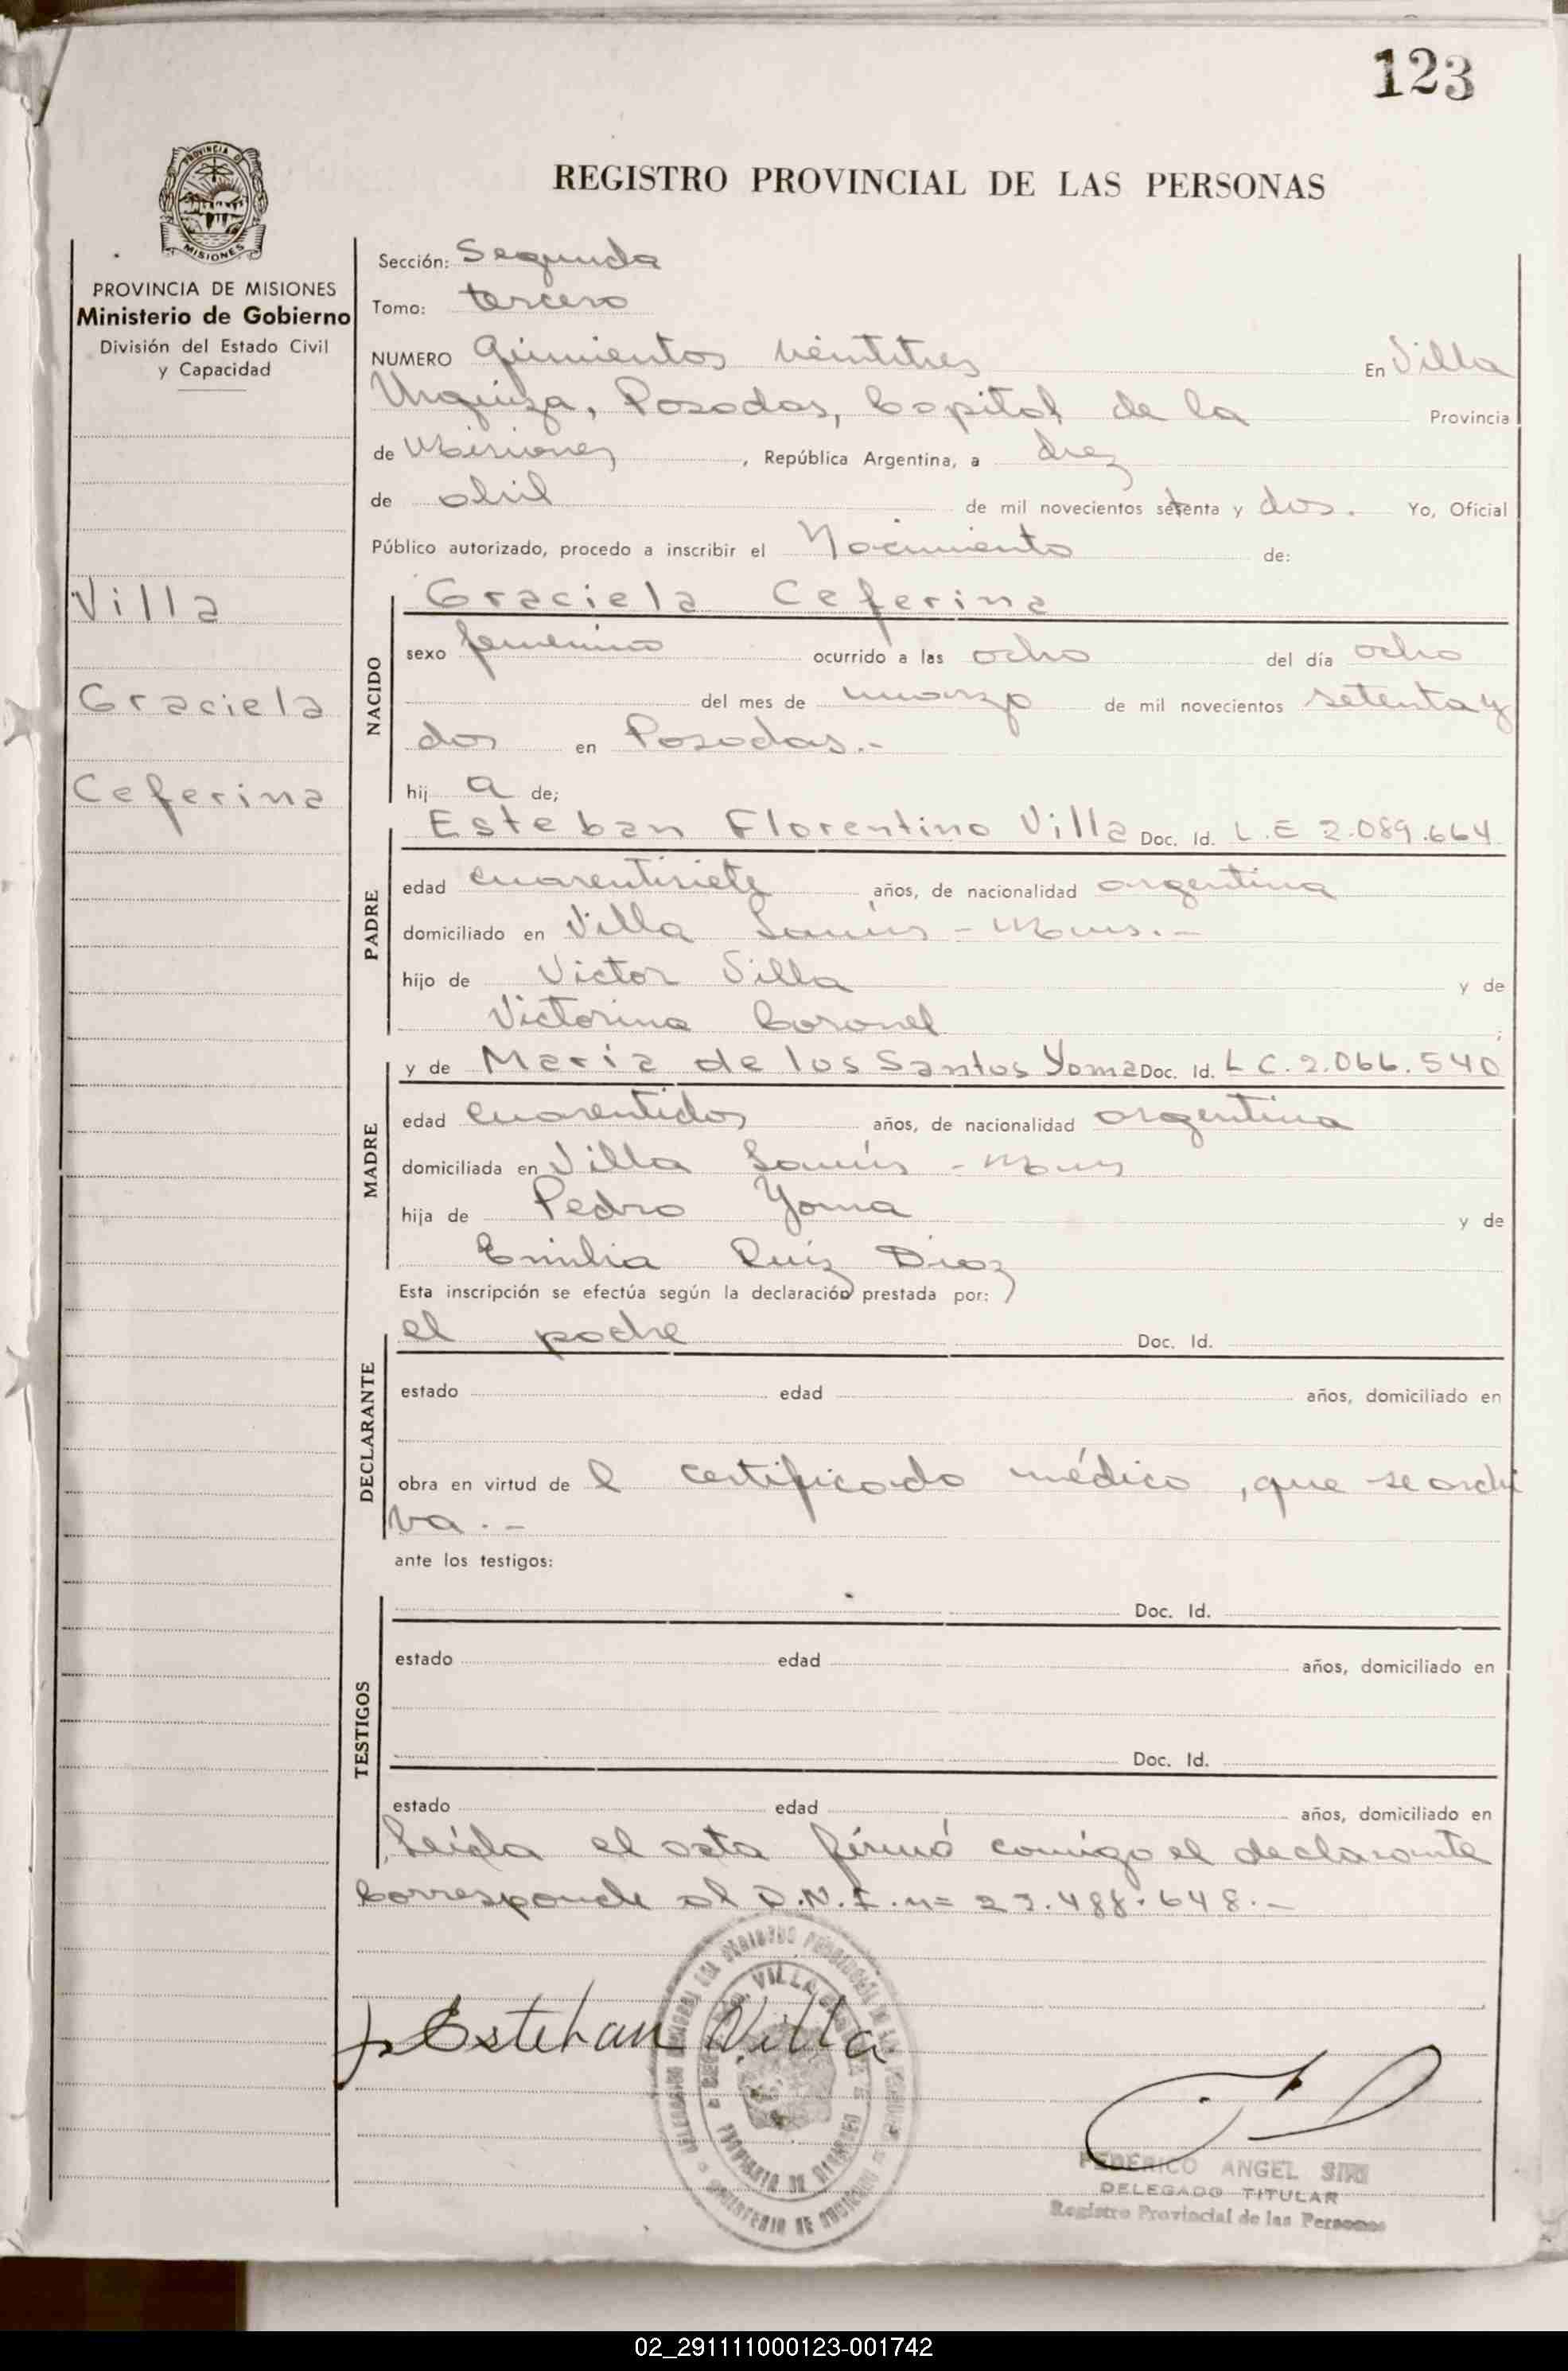 123
PROVINCIA DE
MISIONES
REGISTRO PROVINCIAL DE LAS PERSONAS
PROVINCIA DE MISIONES
Ministerio de Gobierno
División del Estado Civil
y Capacidad
Villa
Graciela
Ceferina
Sección: Segunda
Tomo: tercero
NUMERO Quinientos veintitres En Villa
Urquiza, Posadas, Capital de la Provincia
de Misiones, República Argentina, a diez
de abril de mil novecientos setenta y dos. Yo, Oficial
Público autorizado, procedo a inscribir el Nacimiento de:
NACIDO
Graciela Ceferina
sexo femenino ocurrido a las ocho del día ocho
del mes de marzo de mil novecientos setenta y
dos en Posadas.-
hij a de;
PADRE
Esteban Florentino Villa Doc. Id. L.E 2.089.664
edad cuarentisiete años, de nacionalidad argentina
domiciliado en Villa Lanús - Mnes.-
hijo de Victor Villa y de
Victorina Coronel ;
MADRE
y de Maria de los Santos Yoma Doc. Id. L C. 2.066.540
edad cuarentidos años, de nacionalidad argentina
domiciliada en Villa Lanús - Mnes
hija de Pedro Yoma y de
Emilia Ruiz Diaz
Esta inscripción se efectúa según la declaración prestada por:
DECLARANTE
el padre Doc. Id.
estado edad años, domiciliado en
obra en virtud de l certificado médico, que se archi
va.-
ante los testigos:
TESTIGOS
Doc. Id.
estado edad años, domiciliado en
Doc. Id.
estado edad años, domiciliado en
Leída el acta firmó comigo el declarante
Corresponde al D.N.I. n= 23.488.648.-
Esteban Villa
FEDERICO ANGEL SIRI
DELEGADO TITULAR
Registro Provincial de las Personas
02_291111000123-001742